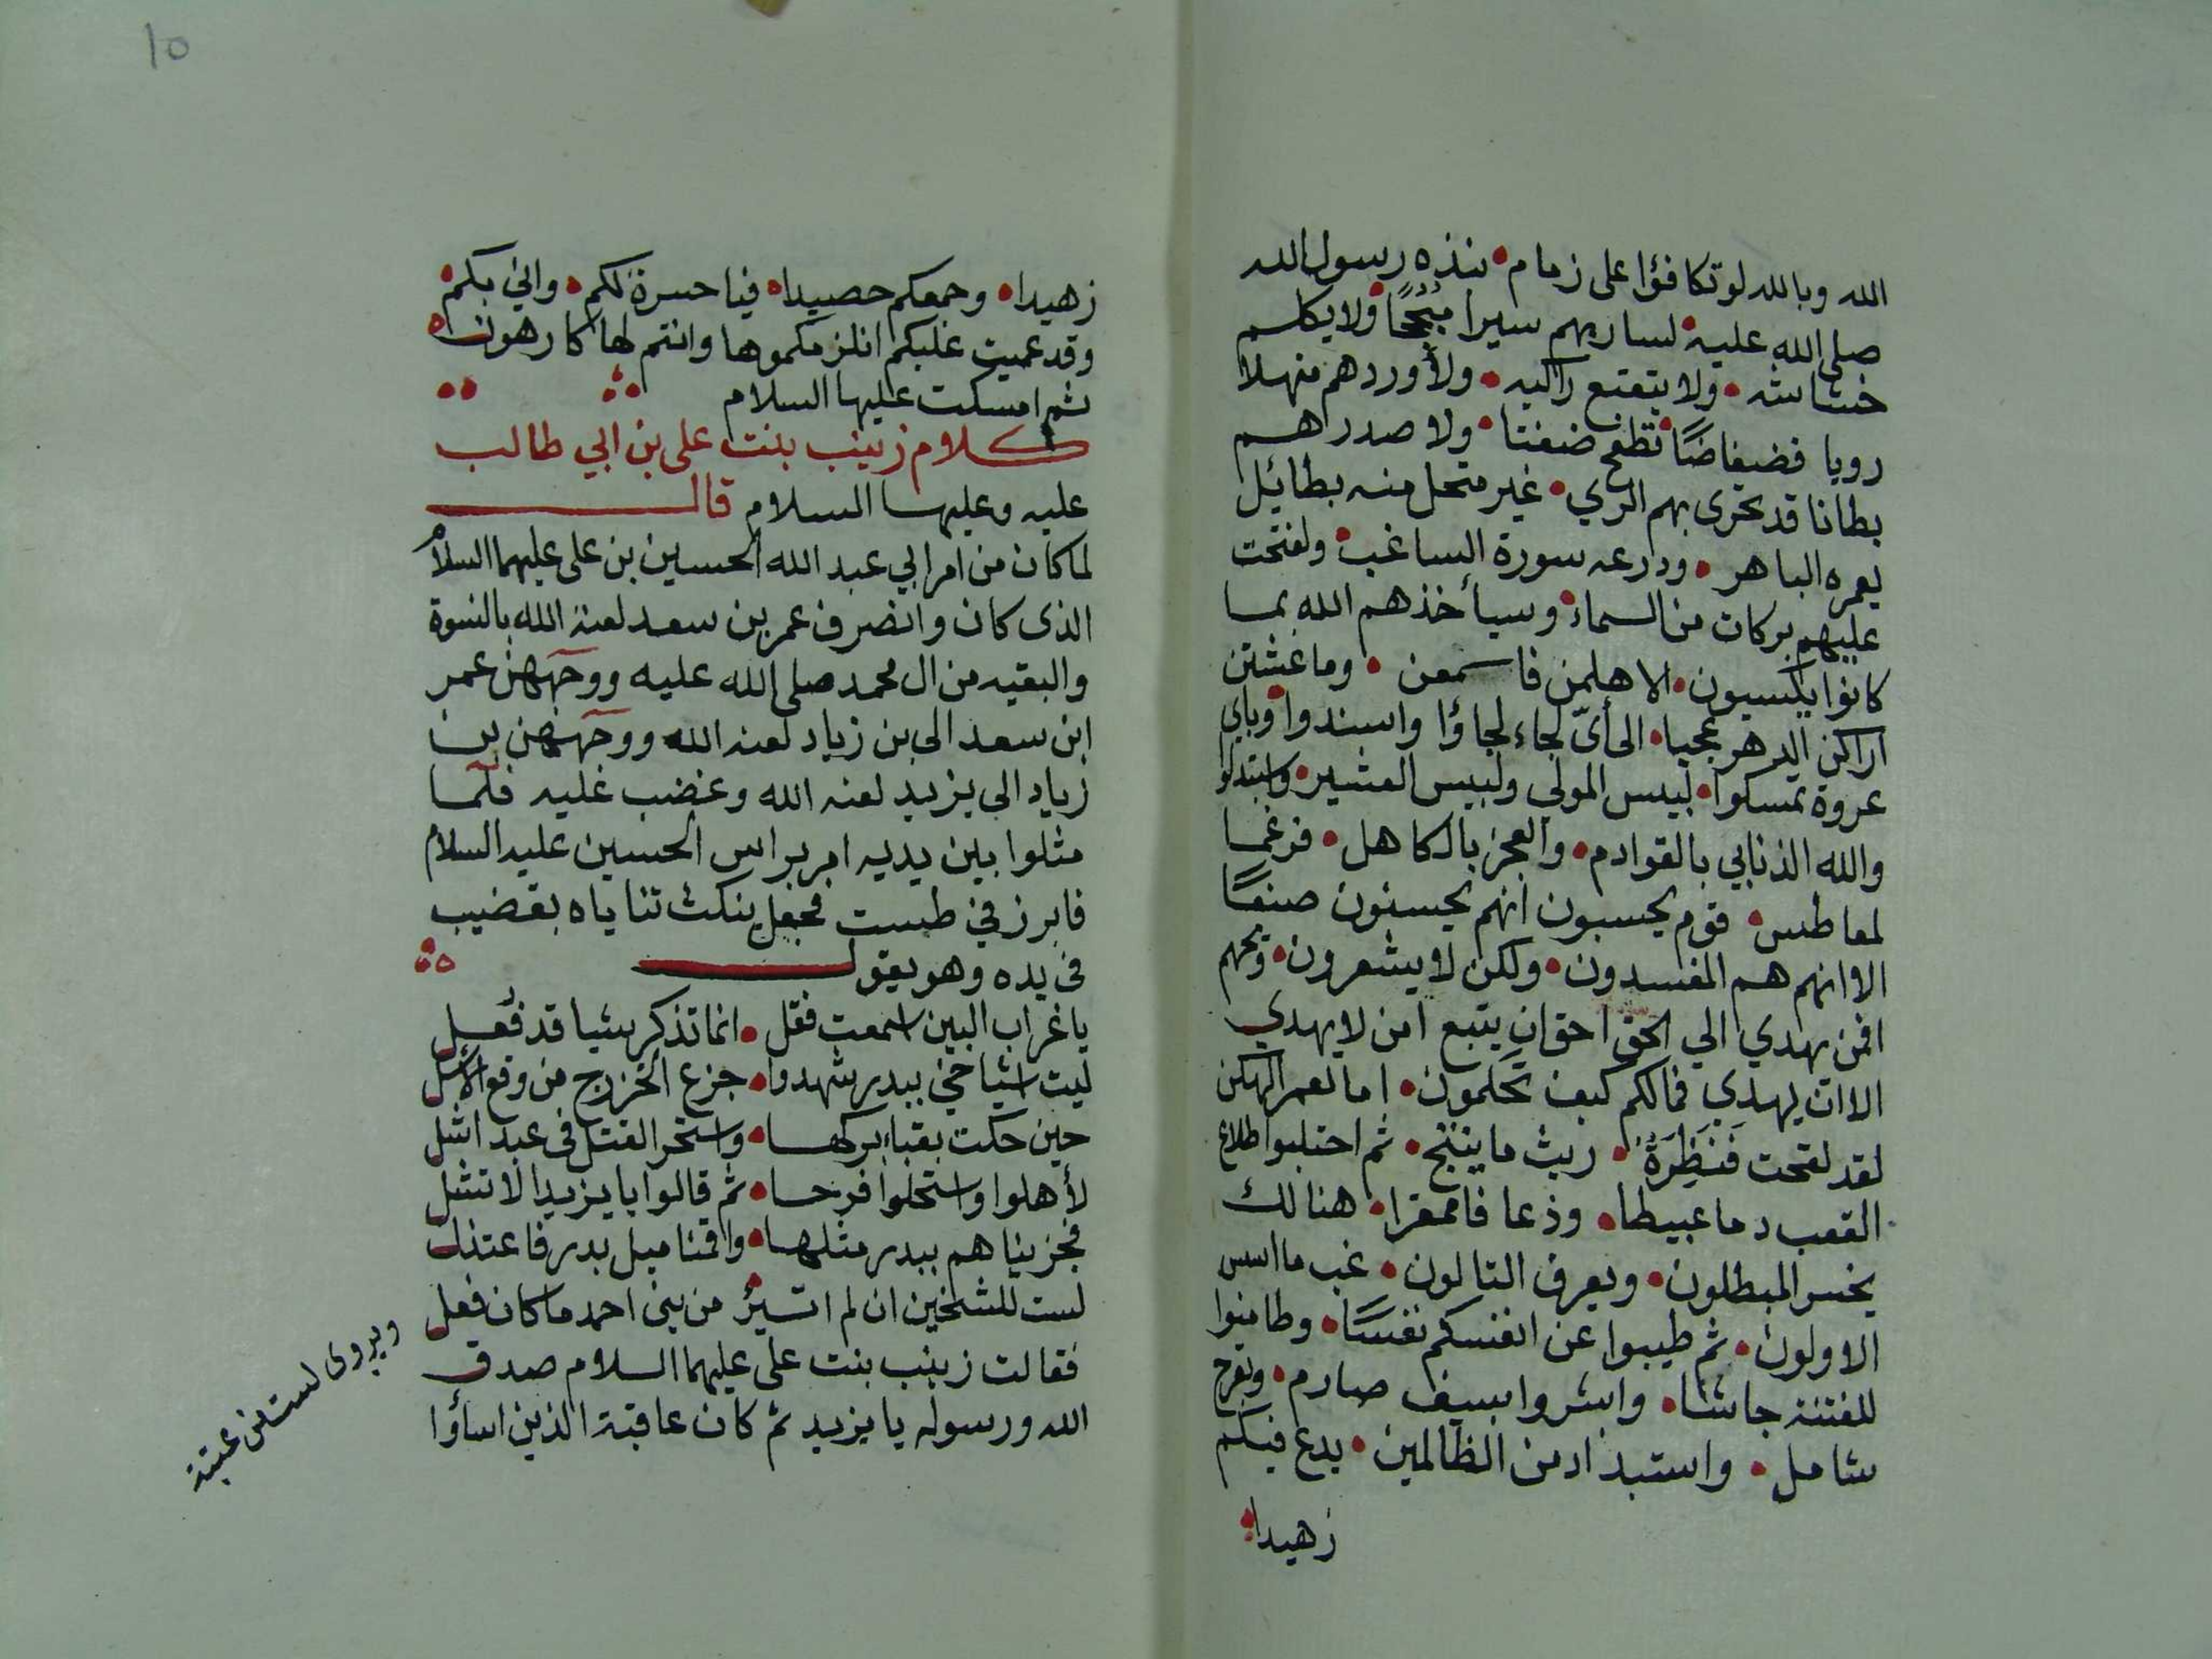 الله وبالله لو تكافؤا على زمام • نبذه رسول الله
صلى الله عليه • لسار بهم سيرا سجحا • ولا يكلم
خشاشه • ولا يتعتع راكبه • ولأوردهم منهلا
رويا فضيفاضًا • تطفح ضفتا • ولا صدراهم
بطانا قد تحرى بهم الري • غير متحل منه بطائيل
بعمره الباهر • ودرعه سورة الساغب • ولفتحت
عليهم بركات من السماء • وسيأخذهم الله بما
كانوا يكسبون • الا هلمن فاسمعن • وما عشتن
اراكن الدهر عجبا • الى أىّ لجاء لجاؤا واسندوا • وباي
عروة تمسكوا • لبيس المولى ولبيس العشير • واستبدلوا
والله الذنابي بالقوادم • والعجز بالكاهل • فرغما
لمعاطس • قوم يحسبون انهم يحسنون صنعًا
الا انهم هم المفسدون • ولكن لا يشعرون • ويحهم
افمن يهدي الي الحق احق ان يتبع امن لا يهدي
الا ان يهدي فمالكم كيف تحكمون • اما لعمر الهكن
لقد لقحت فَنَظِرَةٌ • ريث ما ينتج • ثم احتلبوا طلاع
القعب دما عبيطا • وذعا فا ممقرا • هنا لك
يخسر المبطلون • ويعرف التالون • غب ما اسس
الاولون • ثم طيبوا عن انفسكم نفسًا • وطامنوا
للفتنة جاشا • وابشروا بسيف صارم • وبقرح
شامل • واستبداد من الظالمين • يدع فيئكم
زهيدا •
١٥
زهيدا • وجمعكم حصيدا • فيا حسرة لكم • واني بكم •
وقد عميت عليكم انلزمكموها وانتم لها كارهون ه
ثم امسكت عليها السلام
كلام زينب بنت على بن ابي طالب
عليه وعليها السلام قال
لما كان من امر ابي عبد الله الحسين بن على عليهما السلام
الذى كان وانصرف عمر بن سعد لعنه الله بالنسوة
والبقيه من ال محمد صلى الله عليه ووجههن عمر
ابن سعد الى بن زياد لعنه الله ووجههن بن
زياد الى يزيد لعنه الله وغضب عليه فلما
مثلوا بين يديه امر براس الحسين عليه السلام
فابرز في طست فجعل ينكث ثناياه بقضيب
فى يده وهو يقول
يا غراب البين اسمعت فقل • انما تذكر شيا قد فعل
ليت اشياخي ببدر شهدوا • جزع الخزرج من وقع الأسل
حين حكت بقباء بركها • واستحر القتل فى عبد اشل
لأهلوا واستحلوا فرحا • ثم قالوا يا يزيد الا تشل
فجزيناهم ببدر مثلها • واقمنا ميل بدر فاعتدل
لست للشيخين ان لم اتسئر • من بنى احمد ما كان فعل
فقالت زينب بنت على عليهما السلام صدق
الله ورسوله يا يزيد ثم كان عاقبة الذين اساؤا
ويروى لست من عتبة